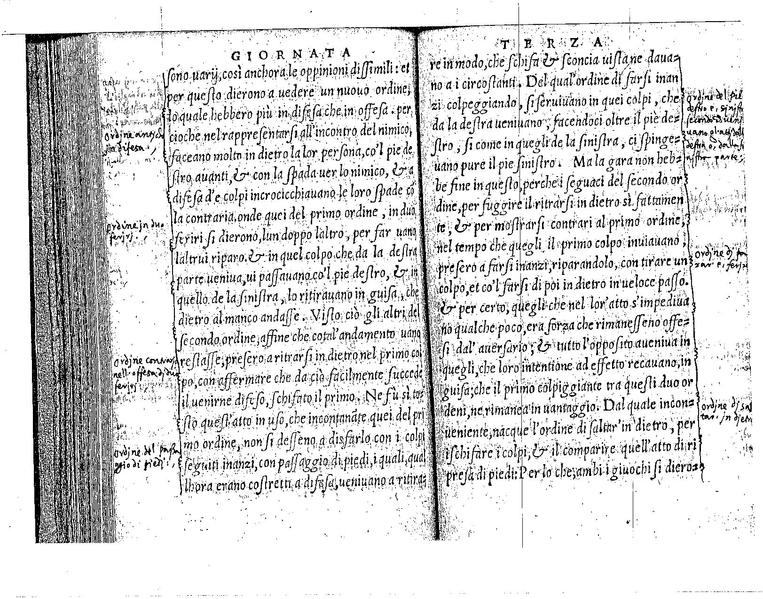 GIORNATA
sono varij, così anchora le oppinioni dissimili: et
per questo dierono a vedere un nuovo ordine,
lo quale hebbero più in difesa che in offesa. per
cioche nel rappresentarsi all'incontro del nimico,
faceano molto in dietro la lor persona, co'l pie de
stro avanti, & con la spada ver lo nimico, & a
difesa d'e colpi incrocicchiavano le loro spade cõ
la contraria, onde quei del primo ordine, in duo
feriri si dierono, l'un doppo l'altro, per far vano
l'altrui riparo, & in quel colpo che da la destra
parte veniva, vi passavano co'l pie destro, & in
quello de la sinistra, lo ritiravano in guisa, che
dietro al manco andasse. Visto ciò gli altri del
secondo ordine, affine che cotal'andamento vano
restasse, presero a ritrarsi in dietro nel primo col
po, con affermare che da ciò facilmente succede
il venirne difeso, schifato il primo. Ne fù sì to-
sto quest'atto in uso, che incontanẽte quei del pri
mo ordine, non si dessero a disfarlo con i colpi
seguiti inanzi, con passaggio di piedi, i quali, qual
lhora erano costretti a difesa, venivano a ritira-
ordine in duo
feriri.
ordine del passag
gio di piedi.
TERZA
re in modo, che schifa & sconcia vista ne dava-
no a i circostanti. Del qual'ordine di farsi inan
zi colpeggiando, si servivano in quei colpi, che
da la destra venivano, facendoci oltre il pie de-
stro, si come in quegli de la sinistra, ci spinge-
vano pure il pie sinistro. Ma la gara non heb-
be fine in questo, perche i seguaci del secondo or
dine, per fuggire il ritrarsi in dietro sì fattamen
te, & per mostrarsi contrari al primo ordine,
nel tempo che quegli, il primo colpo inviavano,
presero a farsi inanzi, riparandolo, con tirare un
colpo, et co'l farsi di poi in dietro in veloce passo.
& per certo, quegli che nel lor'atto s'impediva
no qualche poco, era forza che rimanessero offe-
si dal' aversario, & tutto l'opposito aveniva in
quegli, che loro intentione ad effetto recavano, in
guisa, che il primo colpiggiante tra questi duo or
deni, ne rimanea in vantaggio. Dal quale incon-
veniente, nacque l'ordine di saltar'in dietro, per
ischifare i colpi, & il comparire quell'atto di ri
presa di piedi: Per lo che, ambi i giuochi si diero-